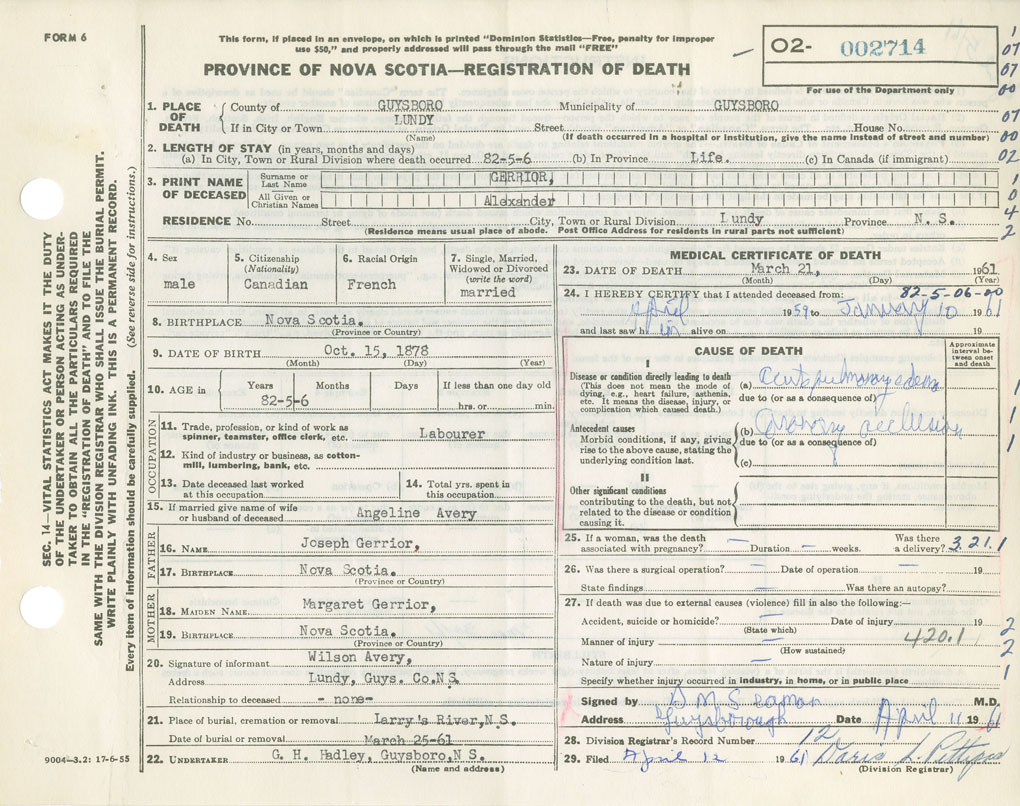 FORM 6
This form, if placed in an envelope, on which is printed "Dominion Statistics—Free, penalty for improper
use $50," and properly addressed will pass through the mail "FREE"
PROVINCE OF NOVA SCOTIA—REGISTRATION OF DEATH
O2- 002714
For use of the Department only
1. PLACE OF DEATH
County of GUYSBORO Municipality of GUYSBORO
LUNDY
If in City or Town Street House No.
(Name) (If death occurred in a hospital or institution, give the name instead of street and number)
2. LENGTH OF STAY (in years, months and days)
(a) In City, Town or Rural Division where death occurred 82-5-6 (b) In Province Life. (c) In Canada (if immigrant)
3. PRINT NAME OF DECEASED
Surname or Last Name GERRIOR,
All Given or Christian Names Alexander
RESIDENCE No. Street City, Town or Rural Division Lundy Province N. S.
(Residence means usual place of abode. Post Office Address for residents in rural parts not sufficient)
4. Sex
male
5. Citizenship
(Nationality)
Canadian
6. Racial Origin
French
7. Single, Married,
Widowed or Divorced
(write the word)
married
8. BIRTHPLACE Nova Scotia.
(Province or Country)
9. DATE OF BIRTH Oct. 15, 1878
(Month) (Day) (Year)
10. AGE in
Years Months Days If less than one day old
82-5-6
hrs. or min.
OCCUPATION
11. Trade, profession, or kind of work as
spinner, teamster, office clerk, etc. Labourer
12. Kind of industry or business, as cotton-
mill, lumbering, bank, etc.
13. Date deceased last worked
at this occupation
14. Total yrs. spent in
this occupation
15. If married give name of wife
or husband of deceased Angeline Avery
FATHER
16. NAME Joseph Gerrior,
17. BIRTHPLACE Nova Scotia.
(Province or Country)
MOTHER
18. MAIDEN NAME Margaret Gerrior,
19. BIRTHPLACE Nova Scotia.
(Province or Country)
20. Signature of informant Wilson Avery,
Address Lundy, Guys. Co.N.S.
Relationship to deceased - none-
21. Place of burial, cremation or removal Larry's River,N.S.
Date of burial or removal March 25-61
22. UNDERTAKER G. H. Hadley, Guysboro,N S.
(Name and address)
MEDICAL CERTIFICATE OF DEATH
23. DATE OF DEATH March 21, 1961
(Month) (Day) (Year)
24. I HEREBY CERTIFY that I attended deceased from: 82-5-06-00
April 1959 to January 10 1961
and last saw him alive on 19
CAUSE OF DEATH
Approximate
interval be-
tween onset
and death
I
Disease or condition directly leading to death
(This does not mean the mode of
dying, e.g., heart failure, asthenia,
etc. It means the disease, injury, or
complication which caused death.)
(a) acute pulmonary edema
due to (or as a consequence of)
Antecedent causes
Morbid conditions, if any, giving
rise to the above cause, stating the
underlying condition last.
(b) Coronary occlusion
due to (or as a consequence of)
(c)
II
Other significant conditions
contributing to the death, but not
related to the disease or condition
causing it.
25. If a woman, was the death
associated with pregnancy? — Duration — weeks. Was there
a delivery? 3.21.1
26. Was there a surgical operation? — Date of operation — 19
State findings — Was there an autopsy?
27. If death was due to external causes (violence) fill in also the following:—
Accident, suicide or homicide? — Date of injury 19
(State which)
Manner of injury — 420.1
(How sustained)
Nature of injury —
Specify whether injury occurred in industry, in home, or in public place
Signed by D M Seaman M.D.
Address Guysborough Date April 11 1961
28. Division Registrar's Record Number 12
29. Filed April 12 1961 Doris L. Pettipas
(Division Registrar)
SEC. 14—VITAL STATISTICS ACT MAKES IT THE DUTY
OF THE UNDERTAKER OR PERSON ACTING AS UNDER-
TAKER TO OBTAIN ALL THE PARTICULARS REQUIRED
IN THE "REGISTRATION OF DEATH" AND TO FILE THE
SAME WITH THE DIVISION REGISTRAR WHO SHALL ISSUE THE BURIAL PERMIT.
WRITE PLAINLY WITH UNFADING INK. THIS IS A PERMANENT RECORD.
Every item of information should be carefully supplied. (See reverse side for instructions.)
9004—3.2: 17-6-55
1
07
07
00
07
00
02
1
0
4
2
1
1
1
1
2
2
1